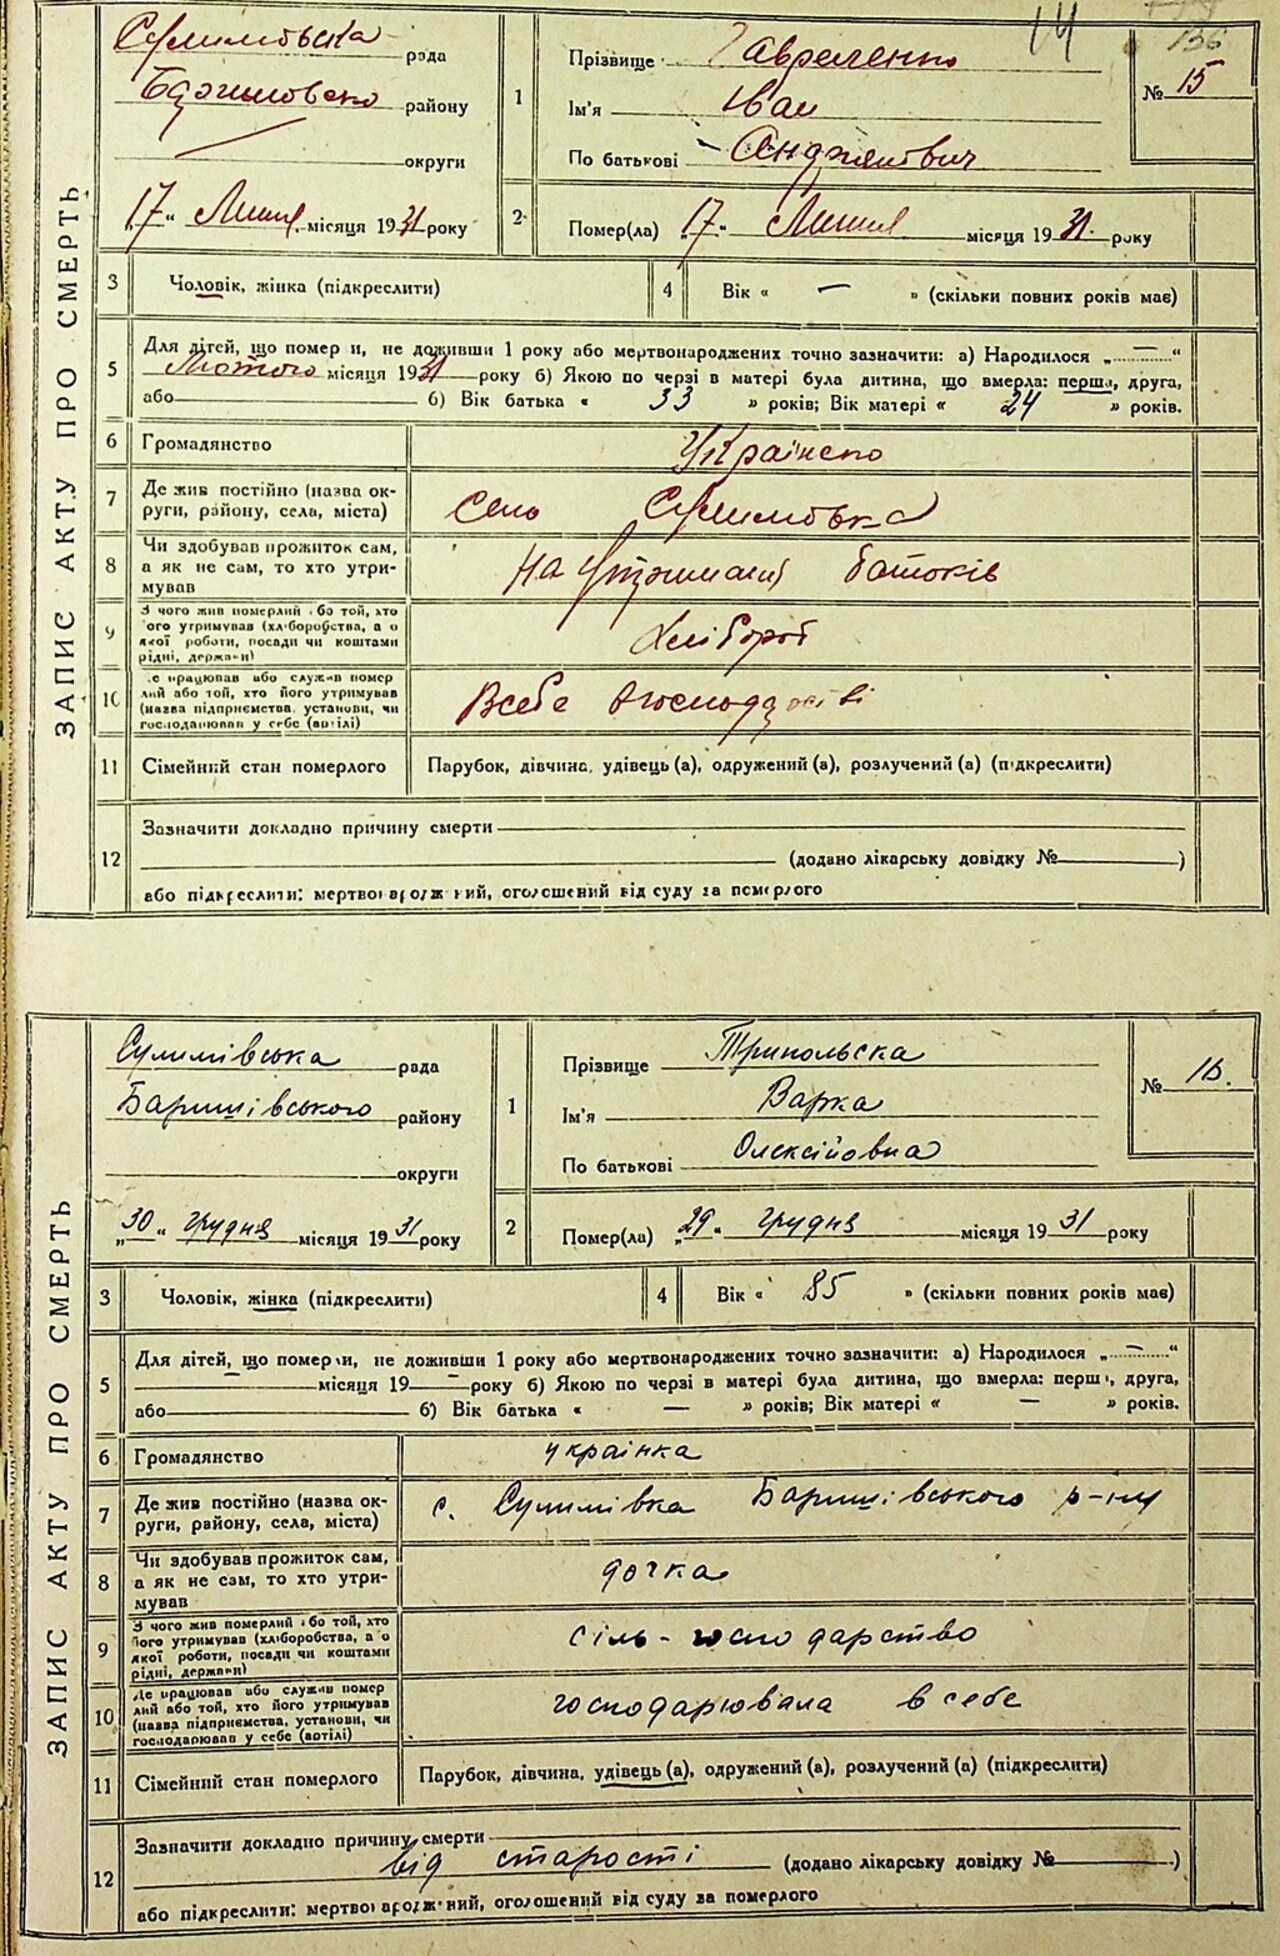 14
136
ЗАПИС АКТУ ПРО СМЕРТЬ
рада
району
округи
„17“ місяця 1931 року
1
Прізвище
Ім'я Іван
По батькові
№ 15
2
Помер(ла) „17“ місяця 1931. року
3 Чоловік, жінка (підкреслити)
4 Вік « — » (скільки повних років має)
5
Для дітей, що померли, не доживши 1 року або мертвонароджених точно зазначити: а) Народилося „ — “
Лютого місяця 1931 року б) Якою по черзі в матері була дитина, що вмерла: перша, друга,
або б) Вік батька « 33 » років; Вік матері « 24 » років.
6 Громадянство
7 Де жив постійно (назва ок-
руги, району, села, міста)
Село
8 Чи здобував прожиток сам,
а як не сам, то хто утри-
мував
На батьків
9 З чого жив померлий або той, хто
його утримував (хліборобства, а о
якої роботи, посади чи коштами
рідні, держави)
Хлібороб
10 Де працював або служив помер
лий або той, хто його утримував
(назва підприємства, установи, чи
господарював у себе (вдома)
Всебе в господарстві
11 Сімейний стан померлого
Парубок, дівчина, удівець (а), одружений (а), розлучений (а) (підкреслити)
12 Зазначити докладно причину смерти
(додано лікарську довідку № )
або підкреслити: мертвонароджений, оголошений від суду за померлого
ЗАПИС АКТУ ПРО СМЕРТЬ
Сулимівська рада
Баришівського району
округи
„30“ грудня місяця 1931 року
1
Прізвище Трипольска
Ім'я Варка
По батькові Олексійовна
№ 16.
2
Помер(ла) „29“ грудня місяця 1931 року
3 Чоловік, жінка (підкреслити)
4 Вік « 85 » (скільки повних років має)
5
Для дітей, що померли, не доживши 1 року або мертвонароджених точно зазначити: а) Народилося „ — “
— місяця 19 — року б) Якою по черзі в матері була дитина, що вмерла: перша, друга,
або б) Вік батька « — » років; Вік матері « — » років.
6 Громадянство
українка
7 Де жив постійно (назва ок-
руги, району, села, міста)
с. Сулимівка Баришівського р-ну
8 Чи здобував прожиток сам,
а як не сам, то хто утри-
мував
дочка
9 З чого жив померлий або той, хто
його утримував (хліборобства, а о
якої роботи, посади чи коштами
рідні, держави)
сіль-господарство
10 Де працював або служив помер
лий або той, хто його утримував
(назва підприємства, установи, чи
господарював у себе (вдома)
господарювала в себе
11 Сімейний стан померлого
Парубок, дівчина, удівець (а), одружений (а), розлучений (а) (підкреслити)
12 Зазначити докладно причину смерти
від старості (додано лікарську довідку № )
або підкреслити: мертвонароджений, оголошений від суду за померлого